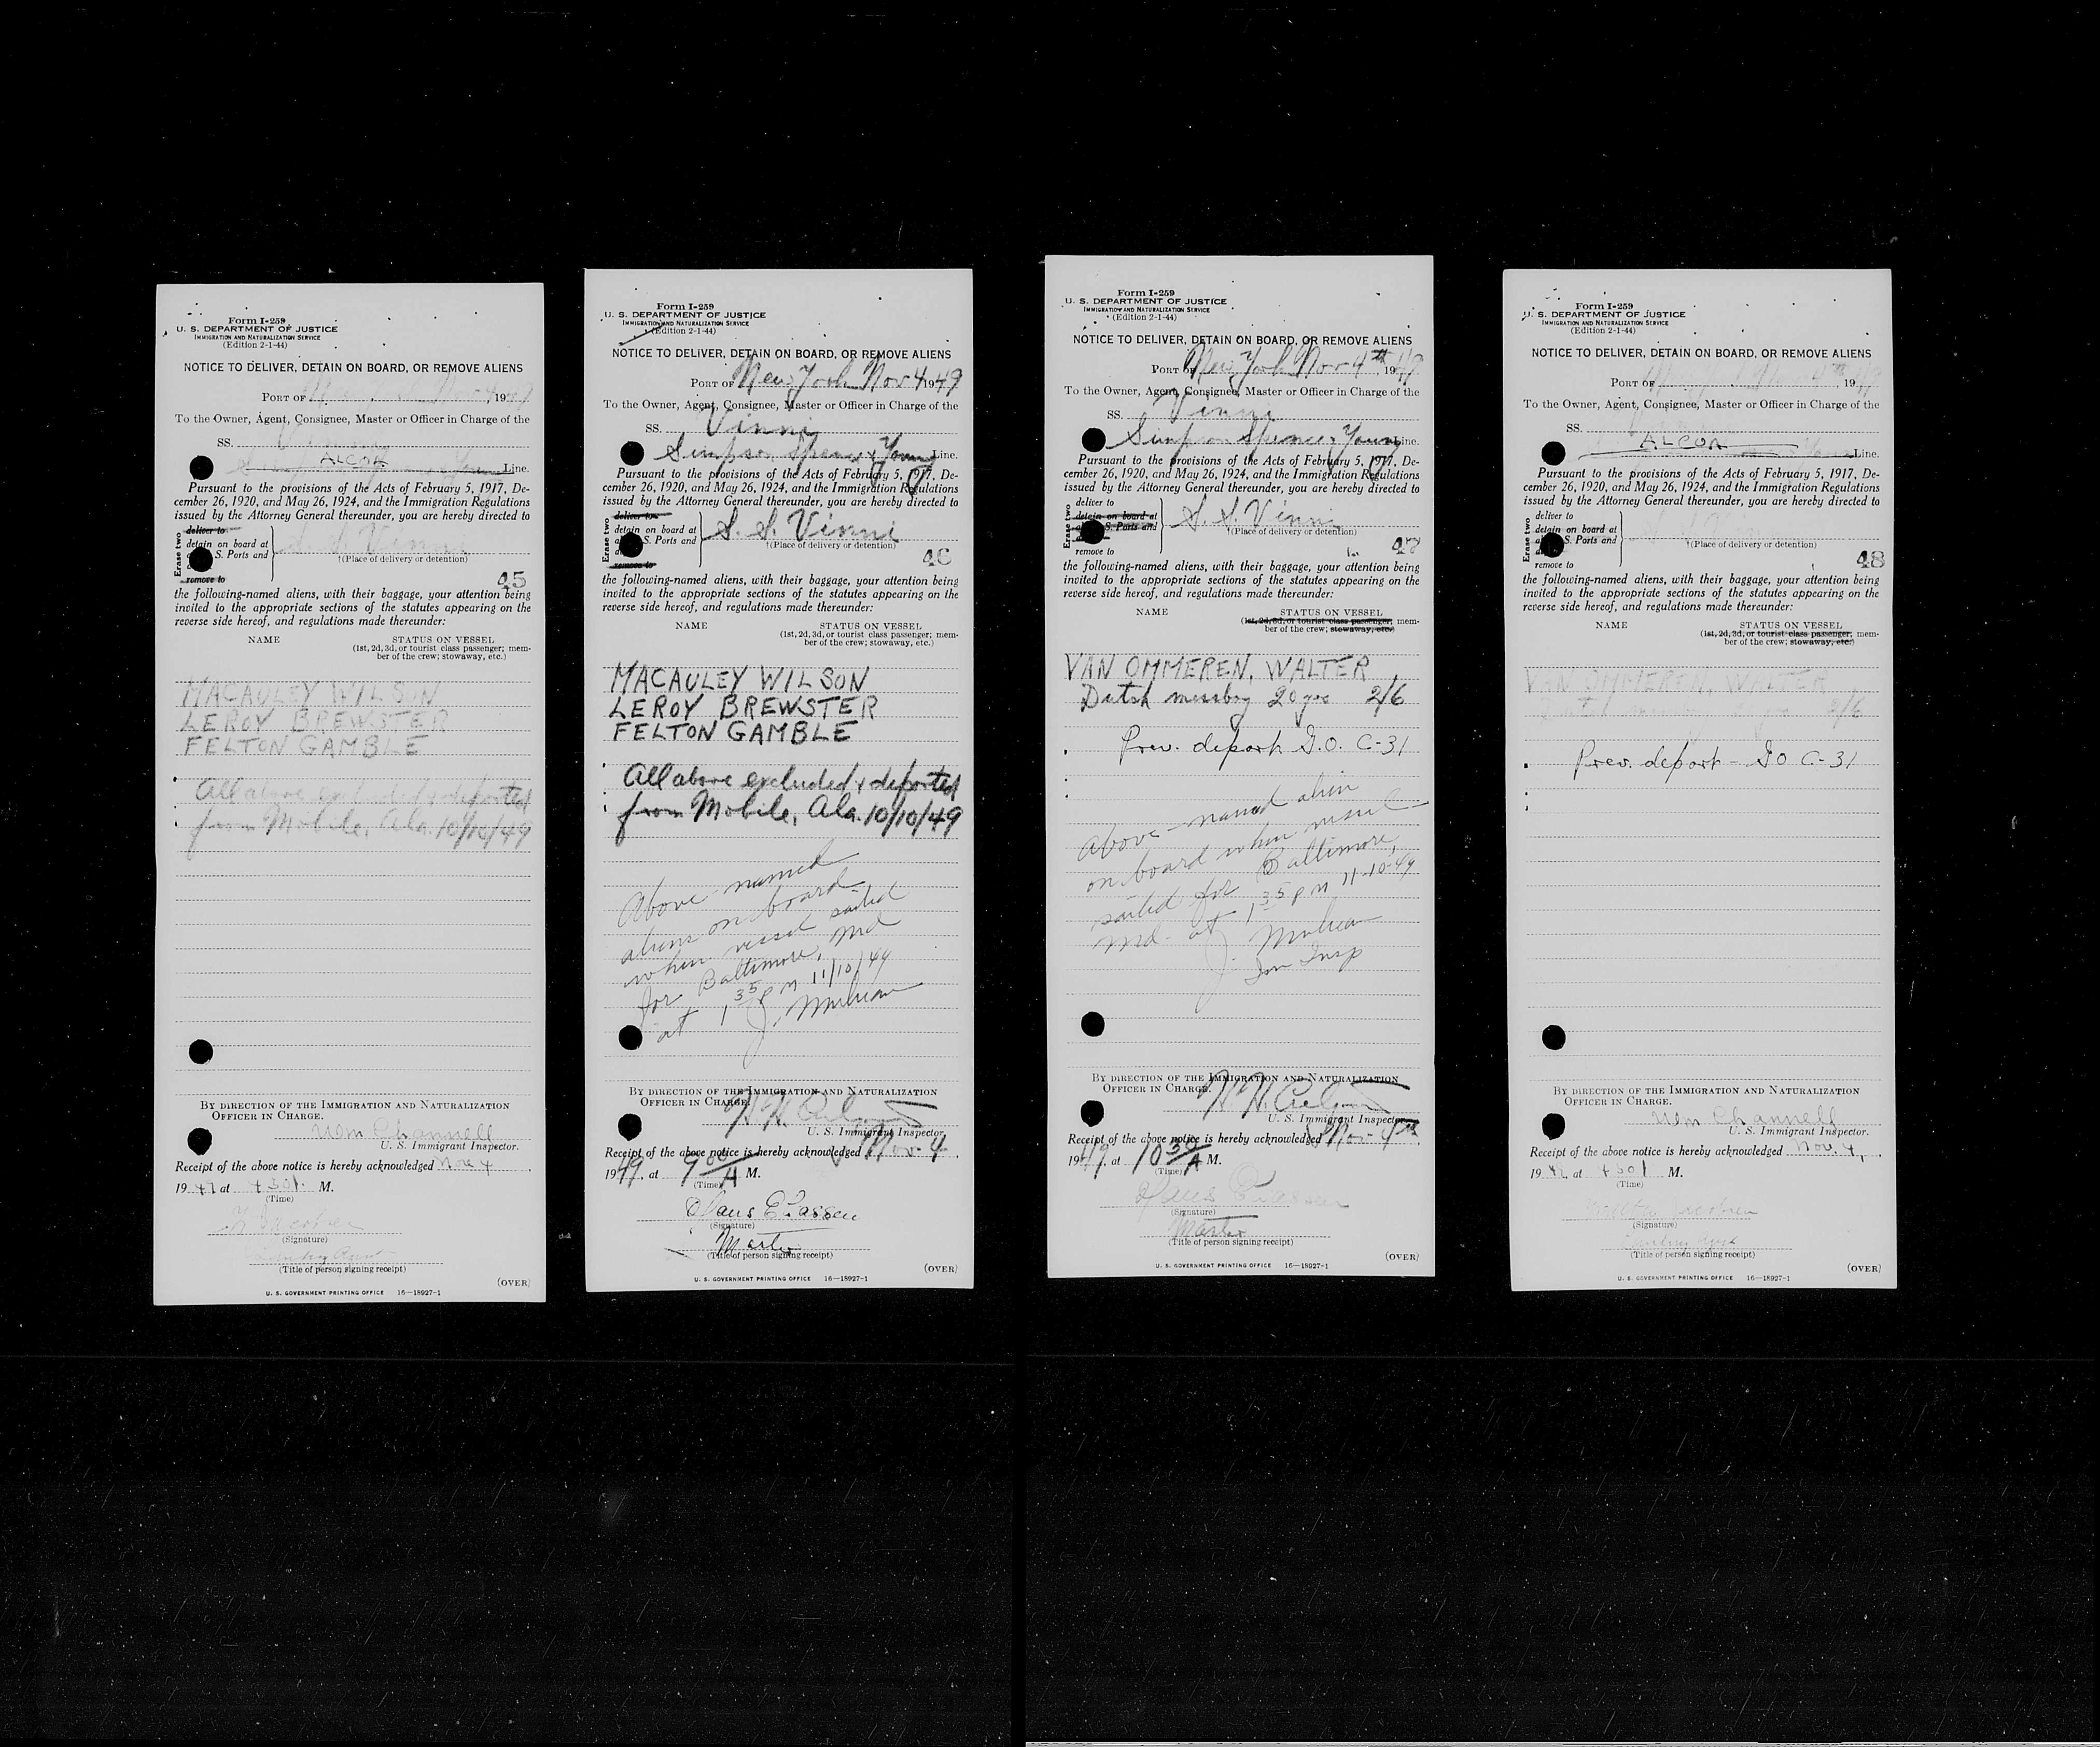 Form I-259
U. S. DEPARTMENT OF JUSTICE
IMMIGRATION AND NATURALIZATION SERVICE
(Edition 2-1-44)
NOTICE TO DELIVER, DETAIN ON BOARD, OR REMOVE ALIENS
PORT OF Nov 4, 1949
To the Owner, Agent, Consignee, Master or Officer in Charge of the
SS.
ALCOA
Line.
Pursuant to the provisions of the Acts of February 5, 1917, De-
cember 26, 1920, and May 26, 1924, and the Immigration Regulations
issued by the Attorney General thereunder, you are hereby directed to
Erase two
deliver to
detain on board at
S. Ports and
remove to
S. S. Vinni
†(Place of delivery or detention)
45
the following-named aliens, with their baggage, your attention being
invited to the appropriate sections of the statutes appearing on the
reverse side hereof, and regulations made thereunder:
NAME STATUS ON VESSEL
(1st, 2d, 3d, or tourist class passenger; mem-
ber of the crew; stowaway, etc.)
MACAULEY WILSON
LEROY BREWSTER
FELTON GAMBLE
All above excluded & deported
from Mobile, Ala. 10/10/49
BY DIRECTION OF THE IMMIGRATION AND NATURALIZATION
OFFICER IN CHARGE.
Wm Channell
U. S. Immigrant Inspector.
Receipt of the above notice is hereby acknowledged Nov 4
19 at M.
(Time)
(Signature)
(Title of person signing receipt)
(OVER)
U. S. GOVERNMENT PRINTING OFFICE 16—18927-1
Form I-259
U. S. DEPARTMENT OF JUSTICE
IMMIGRATION AND NATURALIZATION SERVICE
(Edition 2-1-44)
NOTICE TO DELIVER, DETAIN ON BOARD, OR REMOVE ALIENS
PORT OF New York Nov 4 1949
To the Owner, Agent, Consignee, Master or Officer in Charge of the
SS. Vinni
Simpson Spence & Young Line.
Pursuant to the provisions of the Acts of February 5, 1917, De-
cember 26, 1920, and May 26, 1924, and the Immigration Regulations
issued by the Attorney General thereunder, you are hereby directed to
Erase two
deliver to
detain on board at
S. Ports and
remove to
S. S. Vinni
†(Place of delivery or detention)
46
the following-named aliens, with their baggage, your attention being
invited to the appropriate sections of the statutes appearing on the
reverse side hereof, and regulations made thereunder:
NAME STATUS ON VESSEL
(1st, 2d, 3d, or tourist class passenger; mem-
ber of the crew; stowaway, etc.)
MACAULEY WILSON
LEROY BREWSTER
FELTON GAMBLE
All above excluded & deported
from Mobile, Ala. 10/10/49
Above named
aliens on board
when vessel sailed
for Baltimore, Md
at 1 35 PM 11/10/49
BY DIRECTION OF THE IMMIGRATION AND NATURALIZATION
OFFICER IN CHARGE.
U. S. Immigrant Inspector.
Receipt of the above notice is hereby acknowledged Nov. 4,
1949, at 9 00 A M.
(Time)
(Signature)
Master
(Title of person signing receipt)
(OVER)
U. S. GOVERNMENT PRINTING OFFICE 16—18927-1
Form I-259
U. S. DEPARTMENT OF JUSTICE
IMMIGRATION AND NATURALIZATION SERVICE
(Edition 2-1-44)
NOTICE TO DELIVER, DETAIN ON BOARD, OR REMOVE ALIENS
PORT OF New York Nov 4th 1949
To the Owner, Agent, Consignee, Master or Officer in Charge of the
SS. Vinni
Simpson Spence & Young Line.
Pursuant to the provisions of the Acts of February 5, 1917, De-
cember 26, 1920, and May 26, 1924, and the Immigration Regulations
issued by the Attorney General thereunder, you are hereby directed to
Erase two
deliver to
detain on board at
S. Ports and
remove to
S. S. Vinni
†(Place of delivery or detention)
47
the following-named aliens, with their baggage, your attention being
invited to the appropriate sections of the statutes appearing on the
reverse side hereof, and regulations made thereunder:
NAME STATUS ON VESSEL
(1st, 2d, 3d, or tourist class passenger; mem-
ber of the crew; stowaway, etc.)
VAN OMMEREN, WALTER
Dutch messboy 20 yrs 2/6
Prev. deport I.O. C-31
Above-named alien
on board when vessel
sailed for Baltimore,
Md. at 1 35 PM 11-10-49
Imm Insp
BY DIRECTION OF THE IMMIGRATION AND NATURALIZATION
OFFICER IN CHARGE.
U. S. Immigrant Inspector.
Receipt of the above notice is hereby acknowledged Nov. 4th,
1949, at 10 30 A M.
(Time)
(Signature)
Master
(Title of person signing receipt)
(OVER)
U. S. GOVERNMENT PRINTING OFFICE 16—18927-1
Form I-259
U. S. DEPARTMENT OF JUSTICE
IMMIGRATION AND NATURALIZATION SERVICE
(Edition 2-1-44)
NOTICE TO DELIVER, DETAIN ON BOARD, OR REMOVE ALIENS
PORT OF 4th, 1949
To the Owner, Agent, Consignee, Master or Officer in Charge of the
SS.
ALCOA
Line.
Pursuant to the provisions of the Acts of February 5, 1917, De-
cember 26, 1920, and May 26, 1924, and the Immigration Regulations
issued by the Attorney General thereunder, you are hereby directed to
Erase two
deliver to
detain on board at
S. Ports and
remove to
†(Place of delivery or detention)
48
the following-named aliens, with their baggage, your attention being
invited to the appropriate sections of the statutes appearing on the
reverse side hereof, and regulations made thereunder:
NAME STATUS ON VESSEL
(1st, 2d, 3d, or tourist class passenger; mem-
ber of the crew; stowaway, etc.)
VAN OMMEREN, WALTER
2/6
Prev. deport - I.O C-31
BY DIRECTION OF THE IMMIGRATION AND NATURALIZATION
OFFICER IN CHARGE.
Wm Channell
U. S. Immigrant Inspector.
Receipt of the above notice is hereby acknowledged Nov. 4,
19 at M.
(Time)
(Signature)
(Title of person signing receipt)
(OVER)
U. S. GOVERNMENT PRINTING OFFICE 16—18927-1